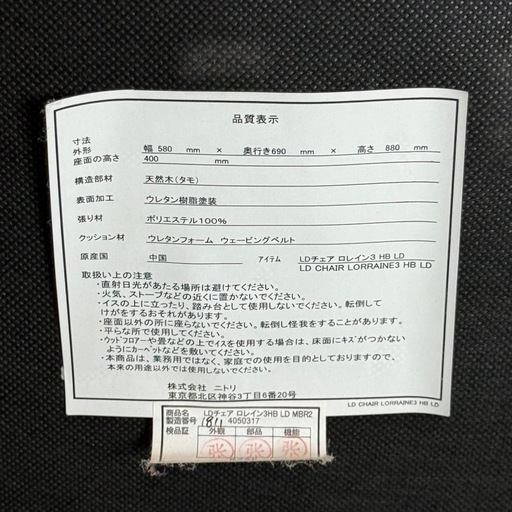 品質表示
寸法
外形 幅 580 mm × 奥行き690 mm × 高さ 880 mm
座面の高さ 400 mm
構造部材 天然木(タモ)
表面加工 ウレタン樹脂塗装
張り材 ポリエステル100%
クッション材 ウレタンフォーム ウェービングベルト
原産国 中国 アイテム LDチェア ロレイン3 HB LD
LD CHAIR LORRAINE3 HB LD
取扱い上の注意
・直射日光があたる場所は避けてください。
・火気、ストーブなどの近くに置かないでください。
・イスの上に立ったり、踏み台として使用しないでください。転倒して
けがをするおそれがあります。
・座面以外の所に座らないでください。転倒し怪我をすることがあります。
・平らな所で使用してください。
・ウッドフロアーや畳などの上でイスを使用する場合は、床面にキズがつかない
ようにカーペットなどを敷いてください。
・本商品は、業務用ではなく、家庭での使用を目的としておりますので、
本来の用途以外では使用しないでください。
株式会社 ニトリ
東京都北区神谷3丁目6番20号
LD CHAIR LORRAINE3 HB LD
商品名 LDチェア ロレイン3HB LD MBR2
製造番号 1811 4050317
検品証 外観 部品 機能
张 张 张